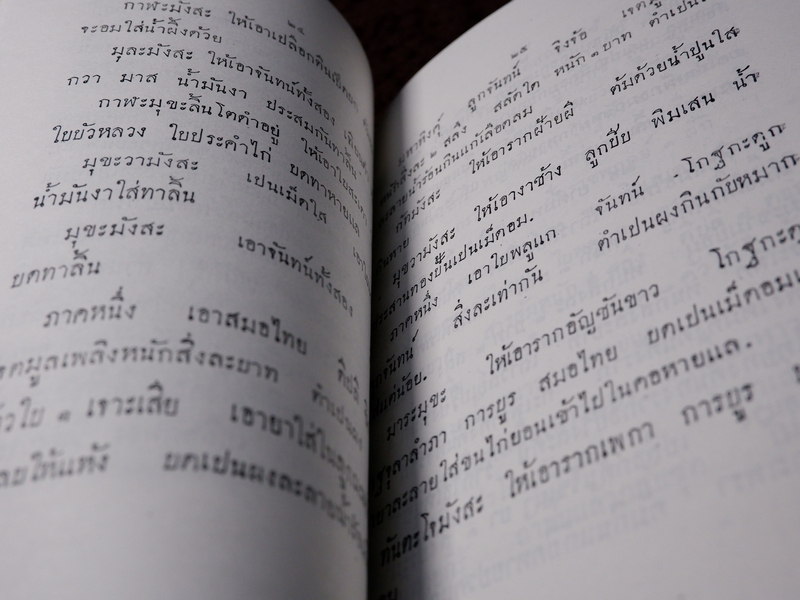 ๒๔
กาฬะมังสะ ให้เอาเปลือกต้น
ระอมใส่น้ำผึ้งด้วย
มุละมังสะ ให้เอาจันทน์ทั้งสอง
กวา มาส น้ำมันงา ประสมกันทาลิ้น
กาฬะมุขะลิ้นโตดำอยู่ ให้เอาใบสะเดา
ใยบัวหลวง ใยประคำไก่ บดทาหายแล
มุขะวามังสะ เปนเม็ดใส
น้ำมันงาใส่ทาลิ้น
มุขะมังสะ เอาจันทน์ทั้งสอง
บดทาลิ้น
ภาคหนึ่ง เอาสมอไทย ดีปลี
เจตมูลเพลิงหนักสิ่งละบาท ทำเปนผง
ใบ ๑ เจาะเสีย เอายาใส่ใน
ให้แห้ง บดเปนผงละลายน้ำ
๒๕
ลูกจันทน์ ขิงร้อ
มหาหิงคุ์
หนักสิ่งละ ๒ สลึง สลัดได หนัก ๑ บาท ทำเปน
ละลายน้ำร้อนกินแก้เลือดลม
มังสะ ให้เอารากฝ้ายผี ต้มด้วยน้ำปูนใส
หาย
มุขวามังสะ ให้เอางาช้าง ลูกยี่ย พิมเสน น้ำ
ประสานทองปั้นเปนเม็ดอม.
ภาคหนึ่ง เอาใบพลูแก จันทน์ โกฐกะดูก
จันทน์ สิ่งละเท่ากัน ทำเปนผงกินกับหมาก
แต่น้อย.
มาระมุขะ ให้เอารากอัญชันขาว โกฐกะดูก
จุลาลำภา การยูร สมอไทย บดเปนเม็ดอม
ยาละลายใส่ขนไก่ยอนเข้าไปในคอหายแล.
ทันตะโรมังสะ ให้เอารากเพกา การยูร